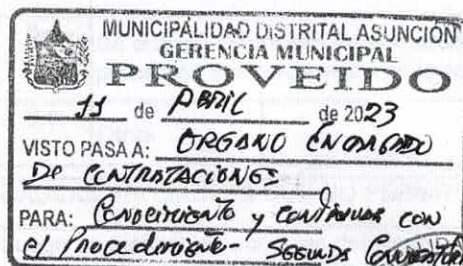 MUNICIPALIDAD DISTRITAL ASUNCIÓN
GERENCIA MUNICIPAL
PROVEIDO
11 de ABRIL de 2023
VISTO PASA A: ORGANO ENCARGADO
DE CONTRATACIONES
PARA: Conocimiento y continuar con
el Procedimiento - SEGUNDA Convocatoria